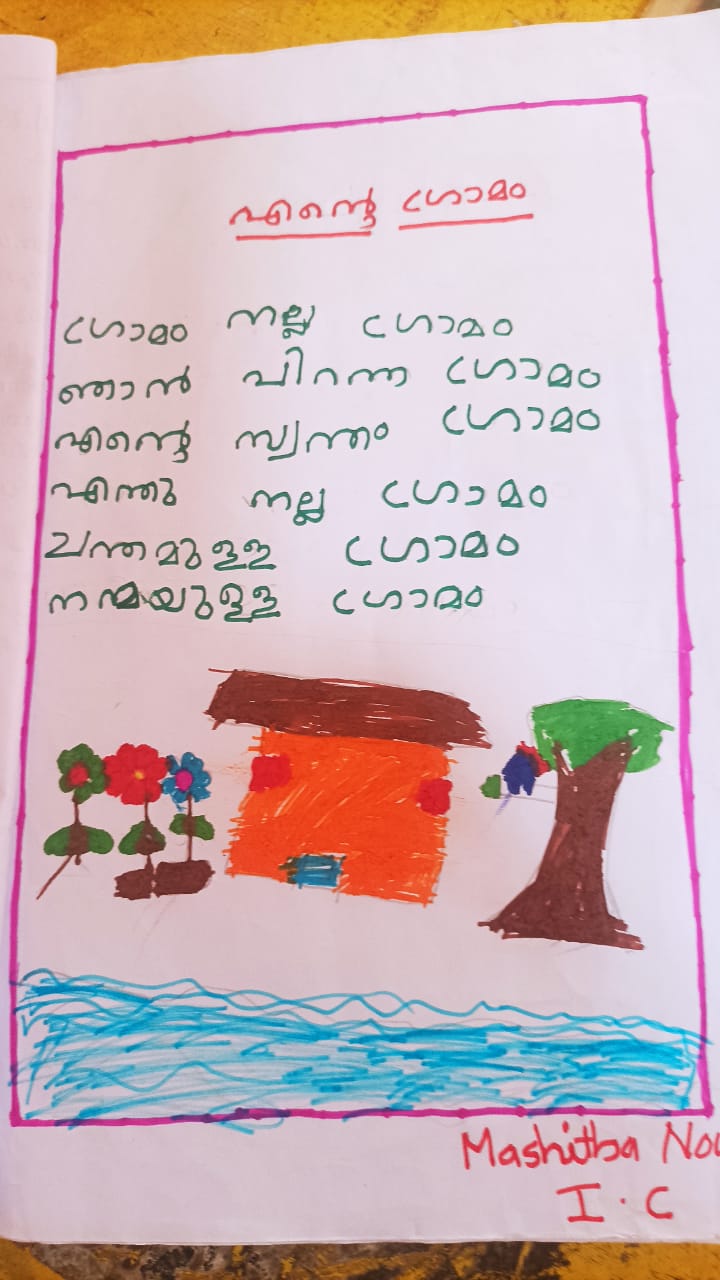 എന്റെ ഗ്രാമം
ഗ്രാമം നല്ല ഗ്രാമം
ഞാൻ പിറന്ന ഗ്രാമം
എന്റെ സ്വന്തം ഗ്രാമം
എന്തു നല്ല ഗ്രാമം
ചന്തമുള്ള ഗ്രാമം
നന്മയുള്ള ഗ്രാമം
Mashitba
I.C